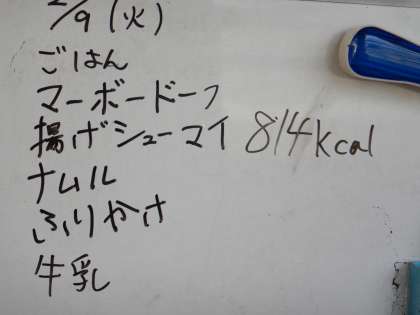 2/9(火)
ごはん
マーボードーフ
揚げシューマイ 814kcal
ナムル
ふりかけ
牛乳